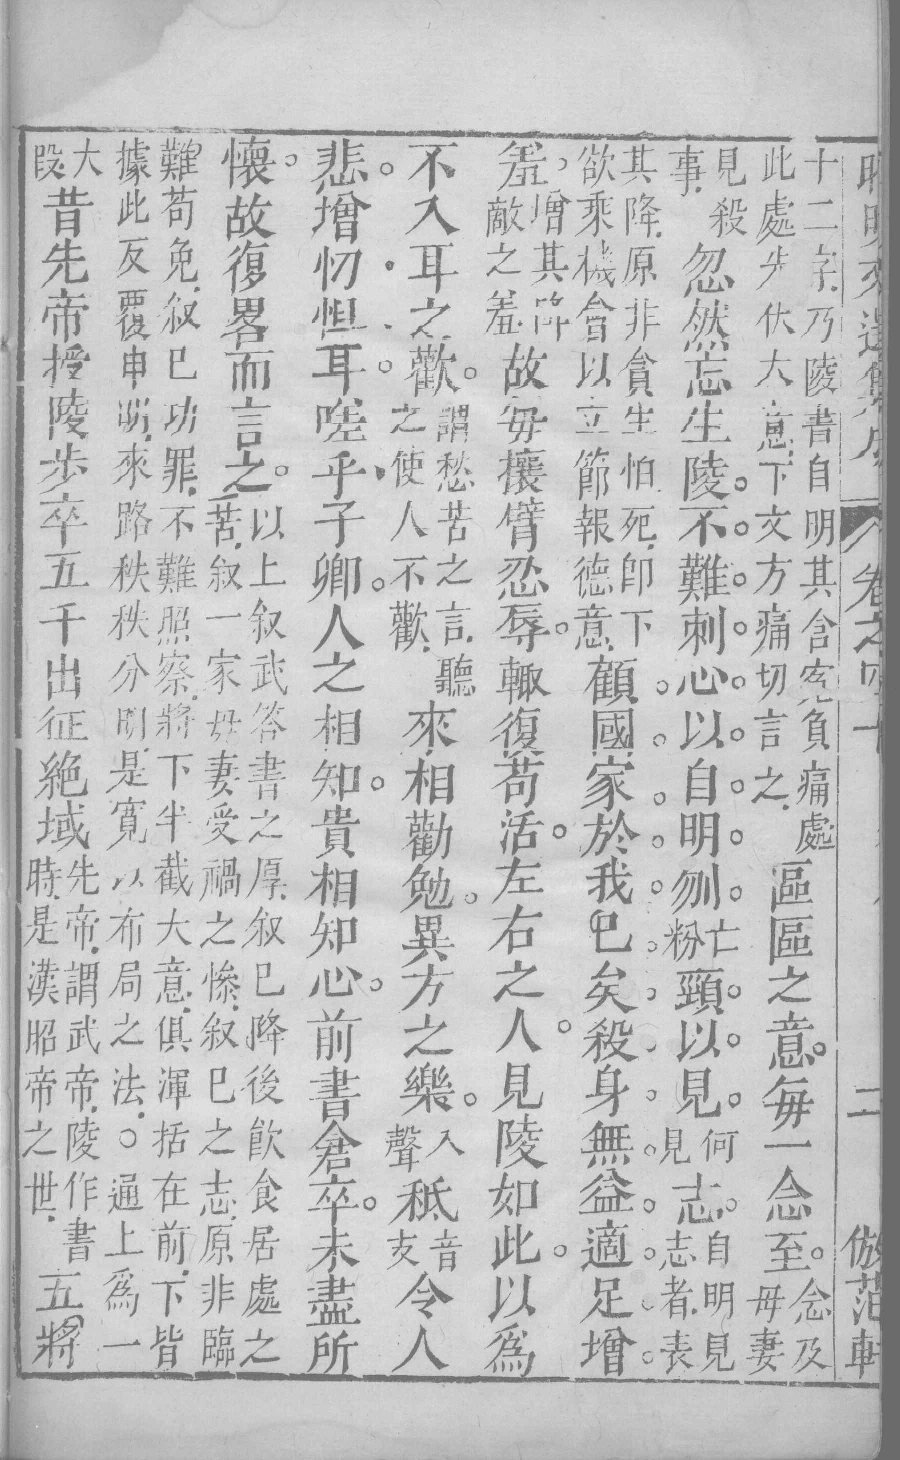 昭明文選集成 卷之四十 二 倣范軒
十二字乃陵書自明其含寃負痛處
此處步伏大意下文方痛切言之
區區之意每一念至
念及
母妻
見殺
事
忽然忘生陵不難刺心以自明刎
亡
粉
頸以見
何
見
志
自明見
志者表
其降原非貪生怕死卽下
欲乘機會以立節報德意
顧國家於我已矣殺身無益適足增
羞
增其降
敵之羞
故每攘臂忍辱輙復苟活左右之人見陵如此以爲
不入耳之歡
謂愁苦之言聽
之使人不歡
來相勸勉異方之樂
入
聲
秪
音
支
令人
悲增忉怛耳嗟乎子卿人之相知貴相知心前書倉卒未盡所
懷故復畧而言之
以上叙武答書之厚叙已降後飲食居處之
苦叙一家母妻受禍之慘叙已之志原非臨
難苟免叙已功罪不難照察將下半截大意俱渾括在前下皆
據此反覆申明來路秩秩分明是寬以布局之法○通上爲一
大
段
昔先帝授陵步卒五千出征絕域
先帝謂武帝陵作書
時是漢昭帝之世
五將